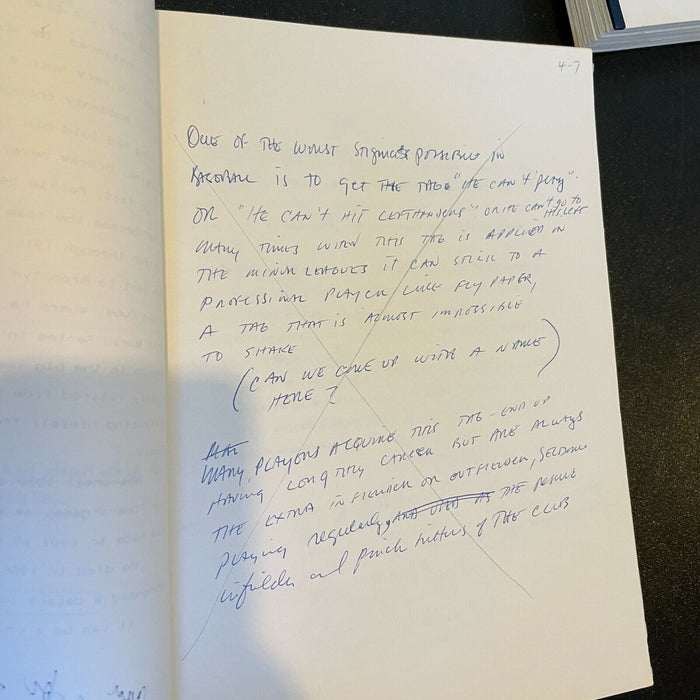 4-7
ONE OF THE WORST Stigmas POSSIBLE IN
BASEBALL IS TO get THE TAG "HE CAN'T play".
OR "HE CAN'T HIT LEFTHANDERS" OR HE CAN'T go to
HIS LEFT
MANY TIMES WHEN THIS TAG IS APPLIED IN
THE MINOR LEAGUES IT CAN STICK TO A
PROFESSIONAL PLAYER LIKE FLY PAPER,
A TAG THAT IS ALMOST IMPOSSIBLE
TO SHAKE
(CAN WE COME UP WITH A NAME
HERE?)
MANY PLAYERS ACQUIRE THIS TAG - END UP
HAVING LONGTIME CAREER BUT ARE ALWAYS
THE EXTRA INFIELDER OR OUTFIELDER, SELDOM
playing regularly, AND USED AS THE
infielder and pinch hitters of THE CLUB